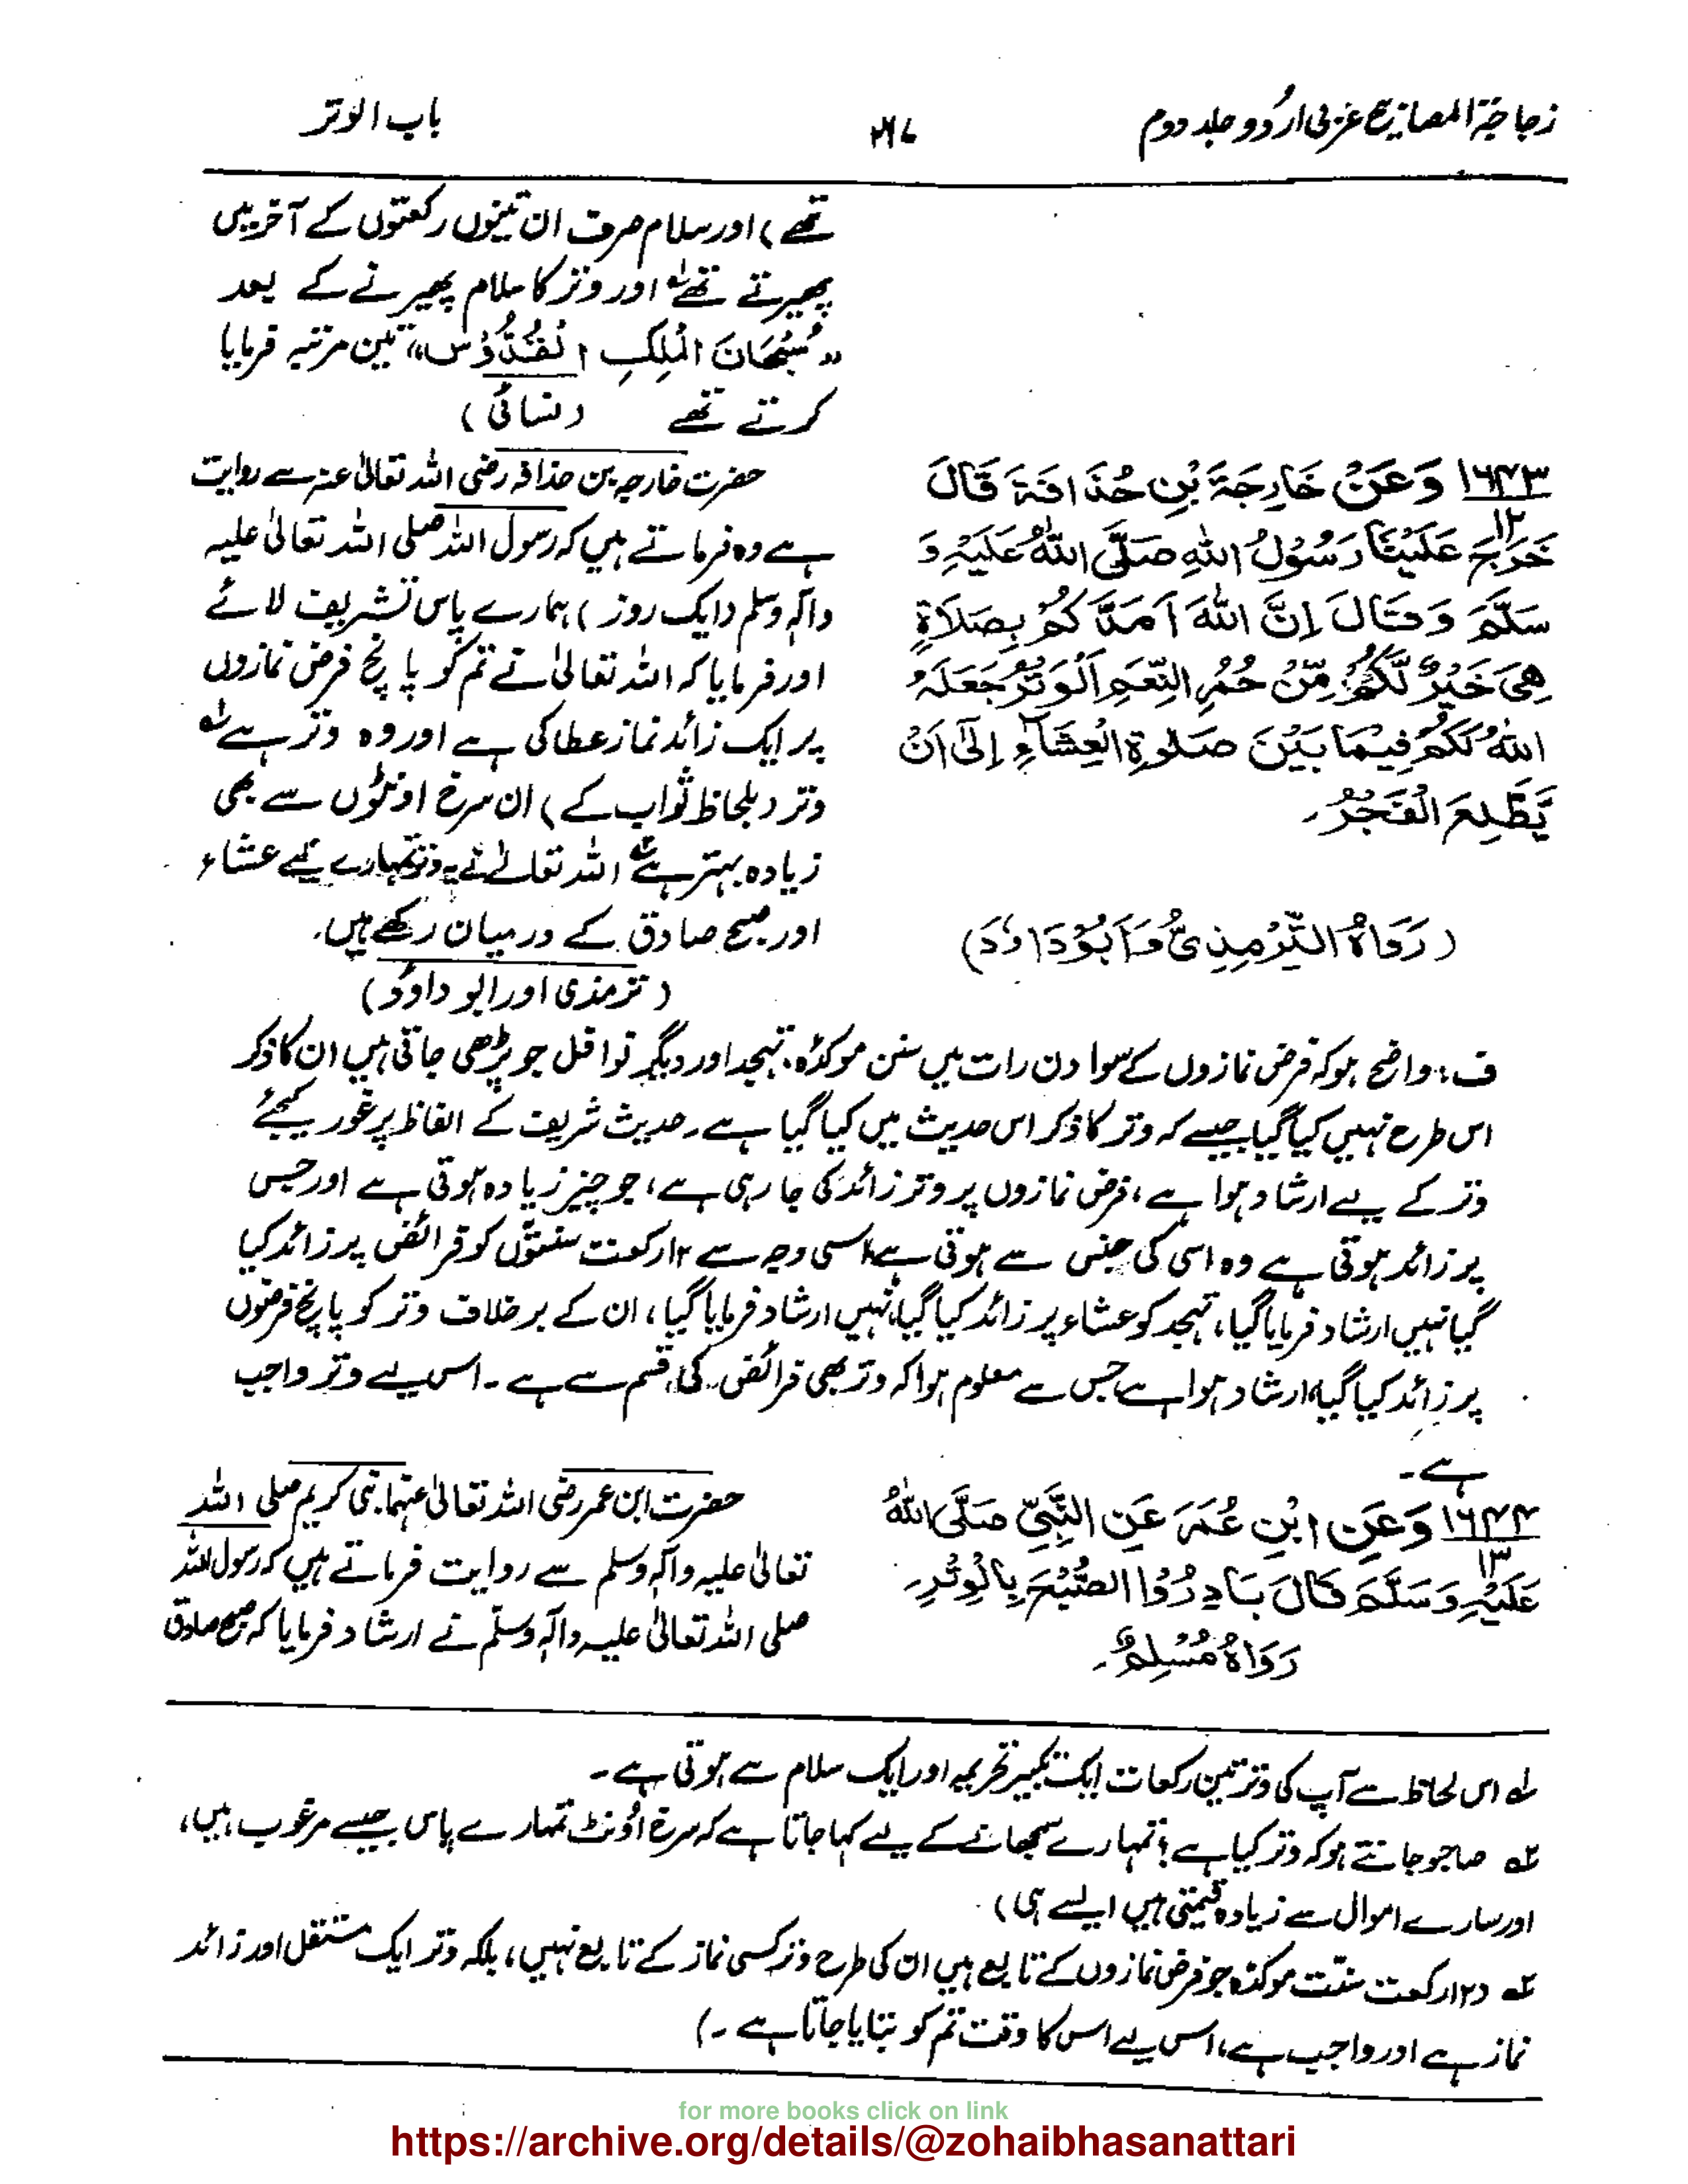 زجاجۃ المصابیح عربی اردو جلد دوم
۲۶۷
باب الوتر
تھے) اور سلام صرف ان تینوں رکعتوں کے آخر میں
پھیرتے تھے لہ اور وتر کا سلام پھیرنے کے بعد
"سُبْحَانَ الْمَلِکِ الْقُدُّوْس" تین مرتبہ فرمایا
کرتے تھے (نسائی)
۱۶۴۳ وَعَنْ خَارِجَةَ بْنِ حُذَافَةَ قَالَ
۱۲
خَرَجَ عَلَيْنَا رَسُوْلُ اللهِ صَلَّى اللهُ عَلَيْهِ وَ
سَلَّمَ وَقَالَ اِنَّ اللهَ اَمَدَّكُمْ بِصَلَاةٍ
هِيَ خَيْرٌ لَّكُمْ مِّنْ حُمُرِ النِّعَمِ اَلْوَتْرُ جَعَلَهُ
اللهُ لَكُمْ فِيْمَا بَيْنَ صَلٰوةِ الْعِشَآءِ اِلٰى اَنْ
يَّطْلِعَ الْفَجْرُ۔
(رَوَاهُ التِّرْمِذِىُّ وَاَبُوْدَاوٗدَ)
حضرت خارجہ بن حذافہ رضی اللہ تعالیٰ عنہ سے روایت
ہے وہ فرماتے ہیں کہ رسول اللہ صلی اللہ تعالیٰ علیہ
وآلہ وسلم (ایک روز) ہمارے پاس تشریف لائے
اور فرمایا کہ اللہ تعالیٰ نے تم کو پانچ فرض نمازوں
پر ایک زائد نماز عطا کی ہے اور وہ وتر ہے
وتر (بلحاظ ثواب کے) ان سرخ اونٹوں سے بھی
زیادہ بہتر ہے اللہ تعالے نے یہ وتر تمہارے لیے عشاء
اور صبح صادق کے درمیان رکھے ہیں۔
(ترمذی اور ابو داوٗد)
ف: واضح ہو کہ فرض نمازوں کے سوا دن رات میں سنن موکدہ، تہجد اور دیگر نوافل جو پڑھی جاتی ہیں ان کا ذکر
اس طرح نہیں کیا گیا جیسے کہ وتر کا ذکر اس حدیث میں کیا گیا ہے۔ حدیث شریف کے الفاظ پر غور کیجئے
وتر کے لیے ارشاد ہوا ہے، فرض نمازوں پر وتر زائد کی جا رہی ہے، جو چیز زیادہ ہوتی ہے اور جس
پر زائد ہوتی ہے وہ اسی کی جنس سے ہوتی ہے، اسی وجہ سے ۱۲ رکعت سنتوں کو فرائض پر زائد کیا
گیا نہیں ارشاد فرمایا گیا، تہجد کو عشاء پر زائد کیا گیا، نہیں ارشاد فرمایا گیا، ان کے برخلاف وتر کو پانچ فرضوں
پر زائد کیا گیا، ارشاد ہوا ہے جس سے معلوم ہوا کہ وتر بھی فرائض کی قسم سے ہے۔ اس لیے وتر واجب
ہے۔
۱۶۴۴ وَعَنِ ابْنِ عُمَرَ عَنِ النَّبِيِّ صَلَّى اللهُ
۱۳
عَلَيْهِ وَسَلَّمَ قَالَ بَادِرُوْا الصُّبْحَ بِالْوِتْرِ۔
رَوَاهُ مُسْلِمٌ۔
حضرت ابن عمر رضی اللہ تعالیٰ عنہما نبی کریم صلی اللہ
تعالیٰ علیہ وآلہ وسلم سے روایت فرماتے ہیں کہ رسول اللہ
صلی اللہ تعالیٰ علیہ وآلہ وسلّم نے ارشاد فرمایا کہ صبح صادق
لہ اس لحاظ سے آپ کی وتر تین رکعات ایک تکبیر تحریمہ اور ایک سلام سے ہوتی ہے۔
صاجو جانتے ہو کہ وتر کیا ہے؟ تمہارے سمجھانے کے لیے کہا جاتا ہے کہ سرخ اُونٹ تمہارے پاس جیسے مرغوب ہیں،
اور سارے اموال سے زیادہ قیمتی ہیں ایسے ہی)
(۱۲ رکعت سنّت موکدہ جو فرض نمازوں کے تابع ہیں ان کی طرح وتر کسی نماز کے تابع نہیں، بلکہ وتر ایک مستقل اور زائد
نماز ہے اور واجب ہے، اس لیے اس کا وقت تم کو بتایا جاتا ہے۔)
for more books click on link
https://archive.org/details/@zohaibhasanattari